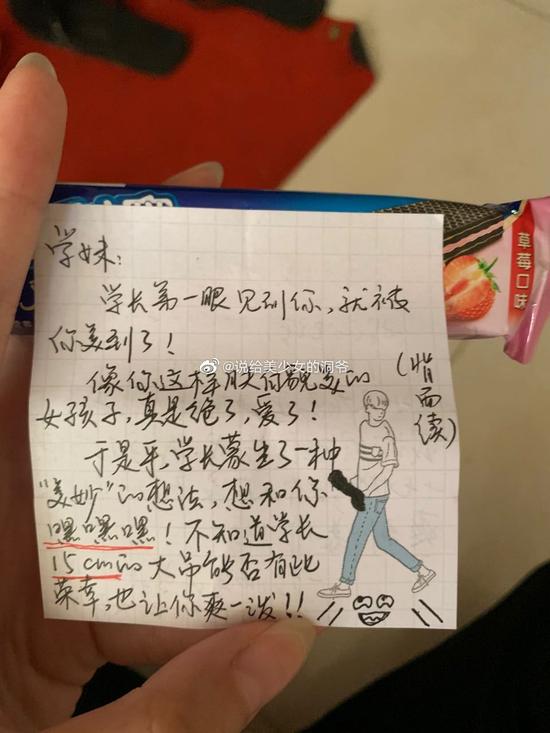 学妹：
学长第一眼见到你，就被
你美到了！
像你这样肤白貌美的
女孩子，真是绝了，爱了！
于是乎，学长萌生了一种
"美妙"的想法，想和你
嘿嘿嘿！不知道学长
15cm的大吊能否有此
荣幸，也让你爽一泼！！
（背面续）
草莓口味
@说给美少女的洞爷